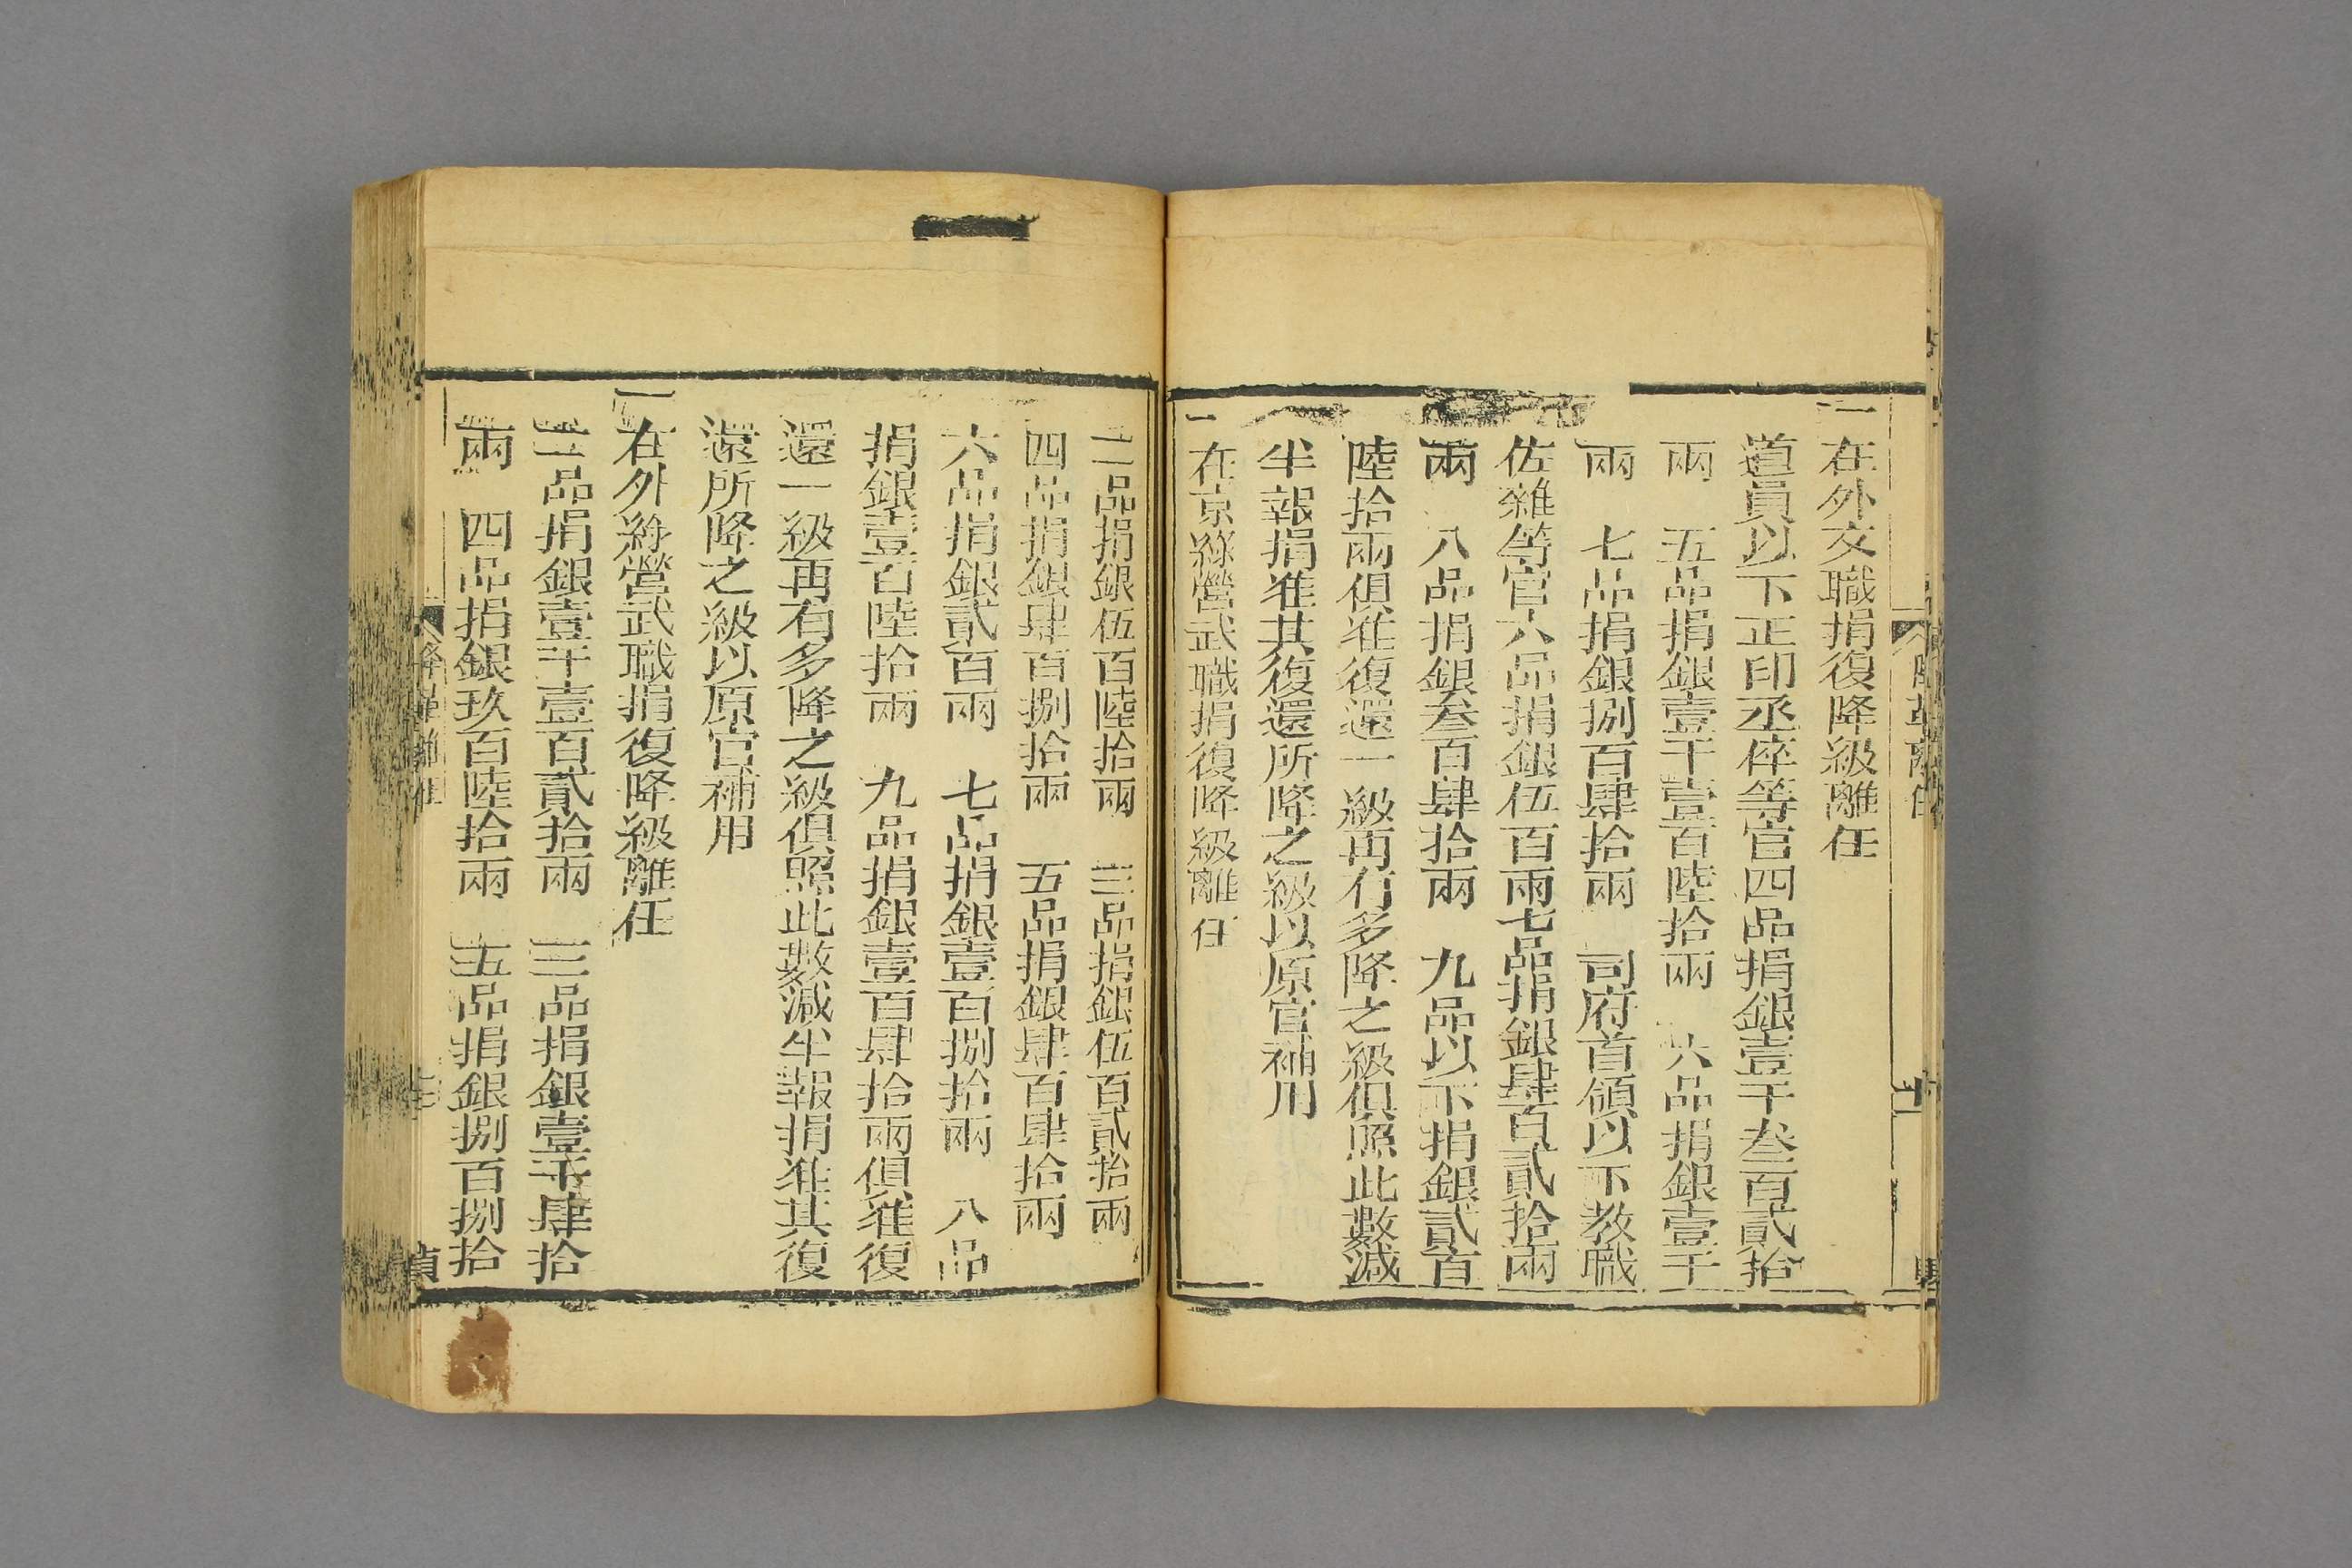 一在外文職捐復降級離任
道員以下正印丞倅等官四品捐銀壹千叁百貳拾
兩　五品捐銀壹千壹百陸拾兩　六品捐銀壹千
兩　七品捐銀捌百肆拾兩　司府首領以下教職
佐雜等官六品捐銀伍百兩七品捐銀肆百貳拾兩
八品捐銀叁百肆拾兩　九品以下捐銀貳百
陸拾兩俱准復還一級再有多降之級俱照此數減
半報捐准其復還所降之級以原官補用
一在京綠營武職捐復降級離任
二品捐銀伍百陸拾兩　三品捐銀伍百貳拾兩
四品捐銀肆百捌拾兩　五品捐銀肆百肆拾兩
六品捐銀貳百兩　七品捐銀壹百捌拾兩　八品
捐銀壹百陸拾兩　九品捐銀壹百肆拾兩俱准復
還一級再有多降之級俱照此數減半報捐准其復
還所降之級以原官補用
一在外綠營武職捐復降級離任
二品捐銀壹千壹百貳拾兩　三品捐銀壹千肆拾
兩　四品捐銀玖百陸拾兩　五品捐銀捌百捌拾